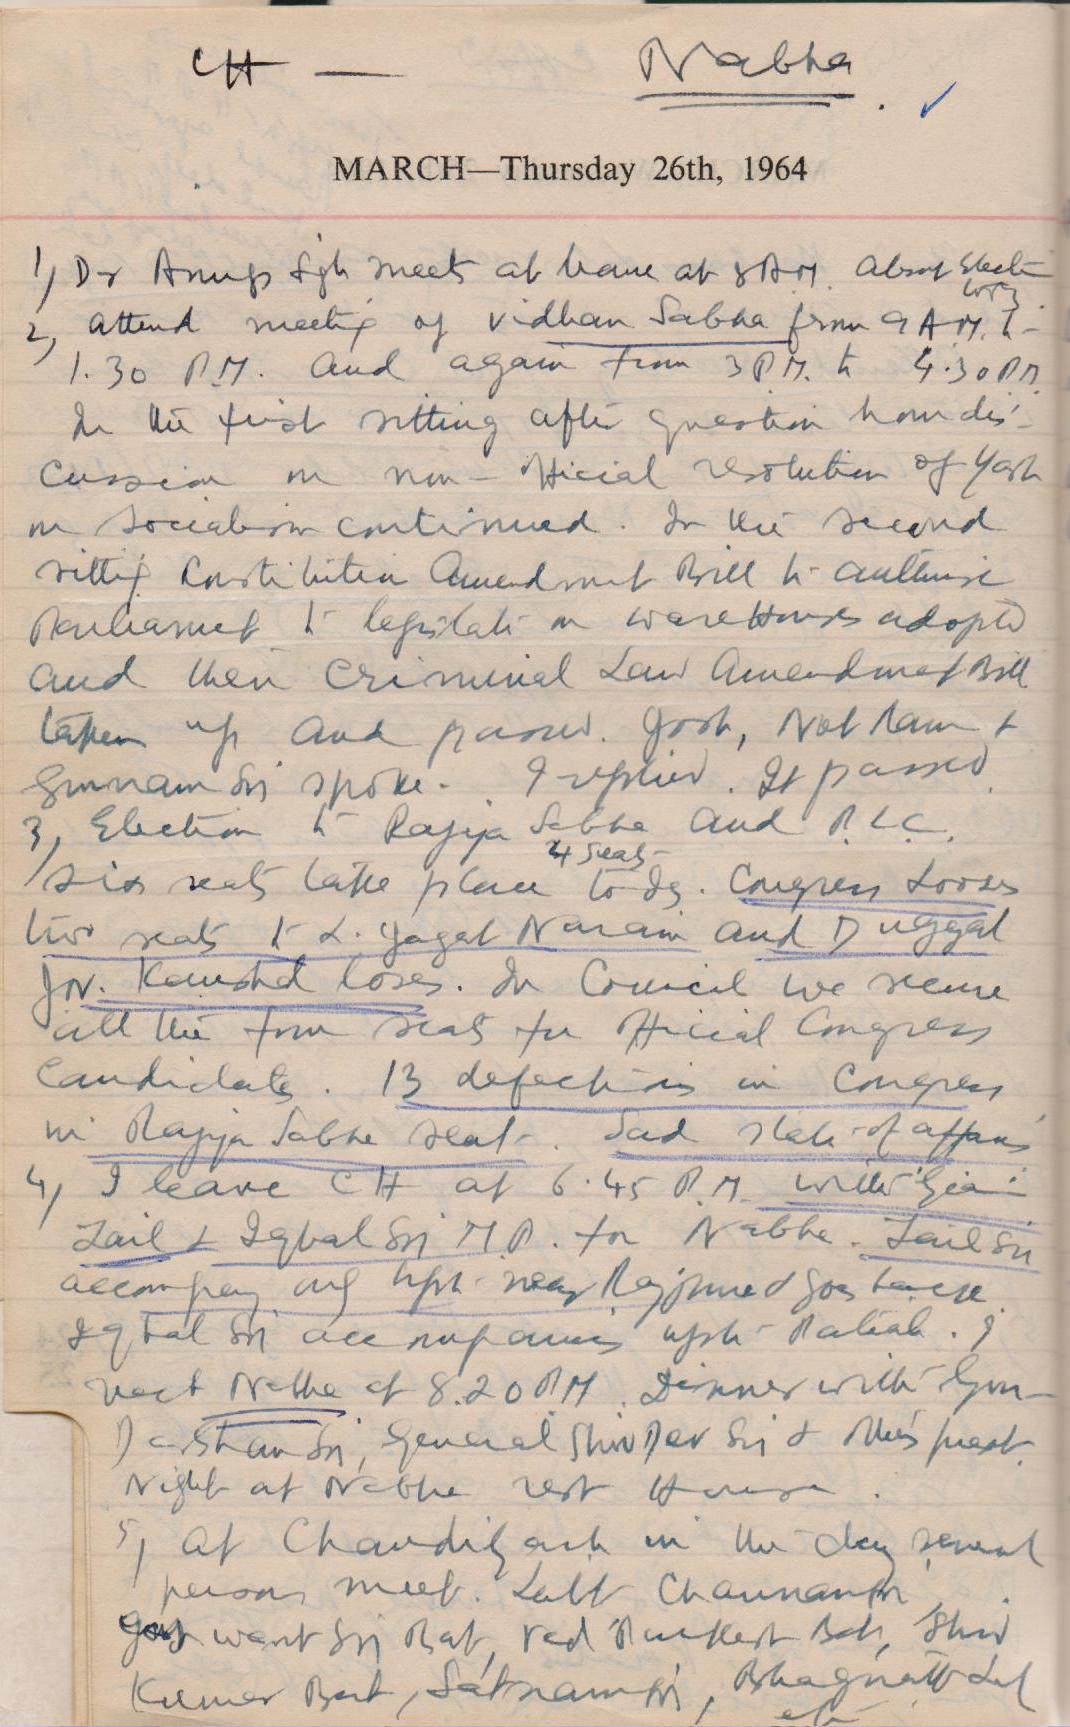 CH — Nabha.
MARCH—Thursday 26th, 1964
1, Dr Anup Sgh meets at home at 8 A.M. about Election
2, attend meeting of Vidhan Sabha from 9 A.M. to
1.30 P.M. and again from 3 P.M. to 4.30 P.M.
In the first sitting after question hour dis-
cussion on non-official resolution of Yash
on Socialism continued. In the second
sitting Constitution Amendment Bill to authorise
Parliament to legislate on wareHouses adopted
and then Criminal Law Amendment Bill
taken up and passed. Josh, Net Ram &
Gurnam Sri spoke. I replied. It passed.
3, Election to Rajya Sabha and P.L.C.
4 seats
six seats take place today. Congress Looses
two seats to L. Jagat Narain and Duggal
Jor. Kaushal loses. In Council we secure
all the four seats for official Congress
Candidates. 13 defections in Congress
in Rajya Sabha seat. Sad state of affairs
4, I leave CH at 6.45 P.M. with Giani
Zail & Iqbal Sri M.P. for Nabha. Zail Sri
accompany only upto near Rajpura & goes back
Iqbal Sri accompanies upto Patiala. I
reach Nabha at 8.20 P.M. Dinner with Gur-
Darshan Sri, General Shiv Dev Sri & others
Night at Nabha rest House.
5, At Chandigarh in the day several
persons meet. Channan Sri
want Sri Ved Shiv
Kumar Satnam Sri, Bhagwat Lal
etc